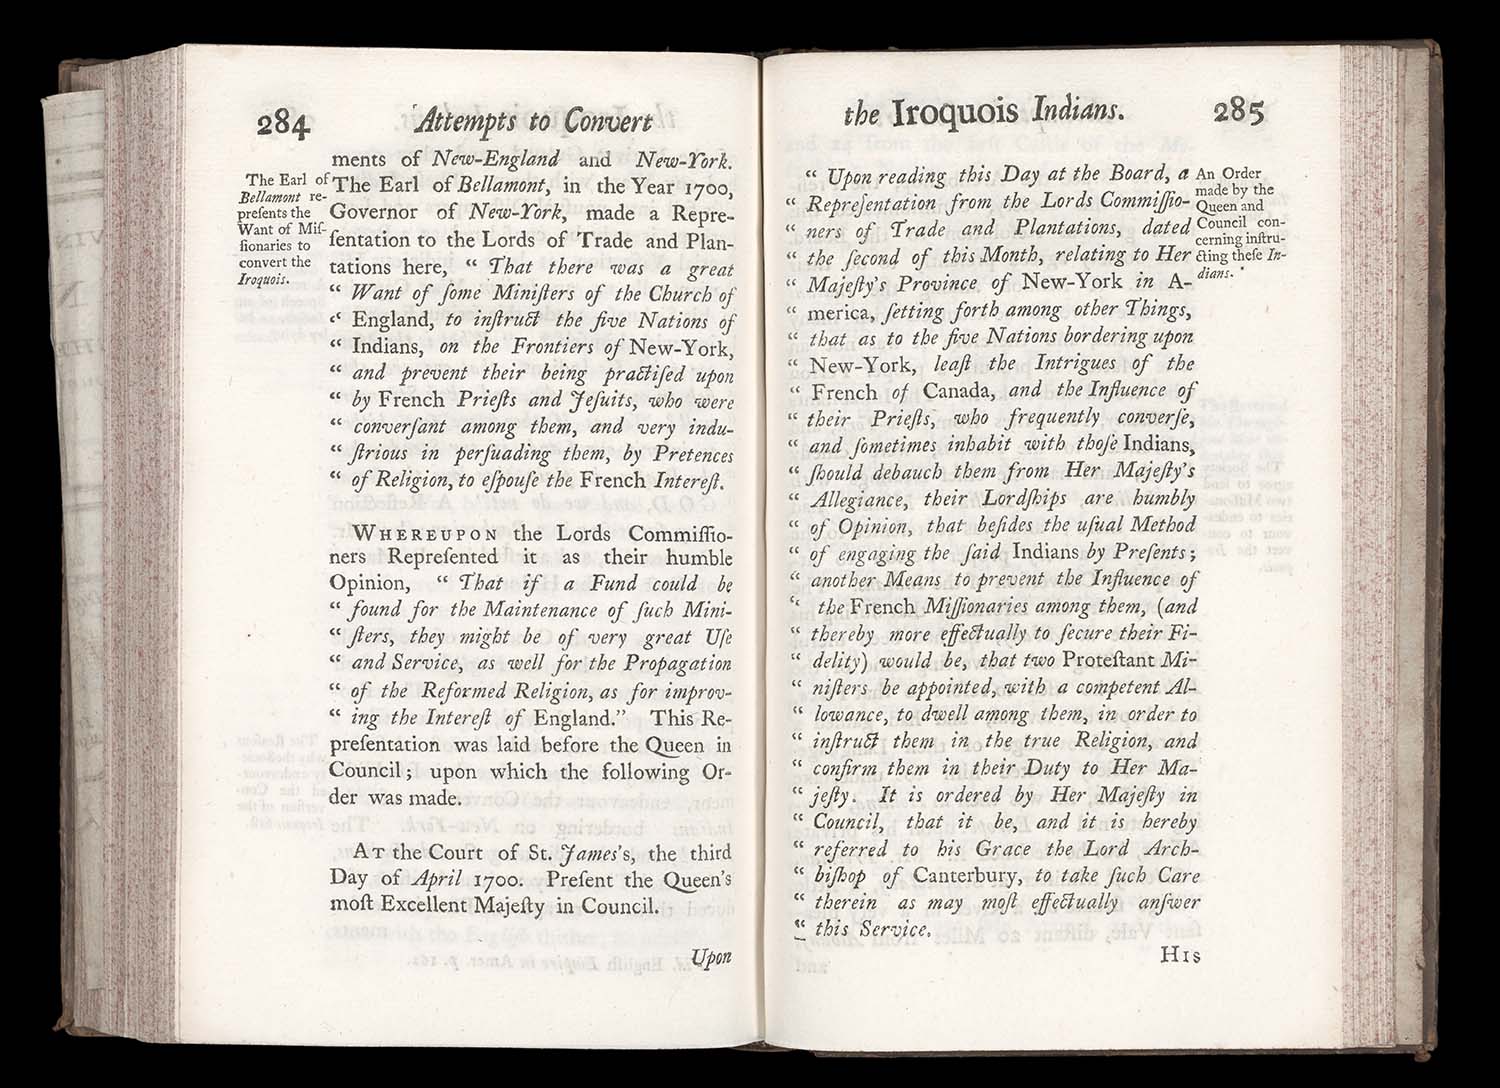 284 Attempts to Convert
ments of New-England and New-York.
The Earl of Bellamont, in the Year 1700,
Governor of New-York, made a Repre-
ſentation to the Lords of Trade and Plan-
tations here, “ That there was a great
“ Want of ſome Miniſters of the Church of
“ England, to inſtruct the five Nations of
“ Indians, on the Frontiers of New-York,
“ and prevent their being practiſed upon
“ by French Prieſts and Jeſuits, who were
“ converſant among them, and very indu-
“ ſtrious in perſuading them, by Pretences
“ of Religion, to eſpouſe the French Intereſt.
The Earl of
Bellamont re-
preſents the
Want of Miſ-
ſionaries to
convert the
Iroquois.
WHEREUPON the Lords Commiſſio-
ners Repreſented it as their humble
Opinion, “ That if a Fund could be
“ found for the Maintenance of ſuch Mini-
“ ſters, they might be of very great Uſe
“ and Service, as well for the Propagation
“ of the Reformed Religion, as for improv-
“ ing the Intereſt of England.” This Re-
preſentation was laid before the Queen in
Council; upon which the following Or-
der was made.
AT the Court of St. James's, the third
Day of April 1700. Preſent the Queen's
moſt Excellent Majeſty in Council.
Upon
the Iroquois Indians. 285
“ Upon reading this Day at the Board, a
“ Repreſentation from the Lords Commiſſio-
“ ners of Trade and Plantations, dated
“ the ſecond of this Month, relating to Her
“ Majeſty's Province of New-York in A-
“ merica, ſetting forth among other Things,
“ that as to the five Nations bordering upon
“ New-York, leaſt the Intrigues of the
“ French of Canada, and the Influence of
“ their Prieſts, who frequently converſe,
“ and ſometimes inhabit with thoſe Indians,
“ ſhould debauch them from Her Majeſty's
“ Allegiance, their Lordſhips are humbly
“ of Opinion, that beſides the uſual Method
“ of engaging the ſaid Indians by Preſents;
“ another Means to prevent the Influence of
“ the French Miſſionaries among them, (and
“ thereby more effectually to ſecure their Fi-
“ delity) would be, that two Proteſtant Mi-
“ niſters be appointed, with a competent Al-
“ lowance, to dwell among them, in order to
“ inſtruct them in the true Religion, and
“ confirm them in their Duty to Her Ma-
“ jeſty. It is ordered by Her Majeſty in
“ Council, that it be, and it is hereby
“ referred to his Grace the Lord Arch-
“ biſhop of Canterbury, to take ſuch Care
“ therein as may moſt effectually anſwer
“ this Service.
An Order
made by the
Queen and
Council con-
cerning inſtru-
cting theſe In-
dians.
HIS